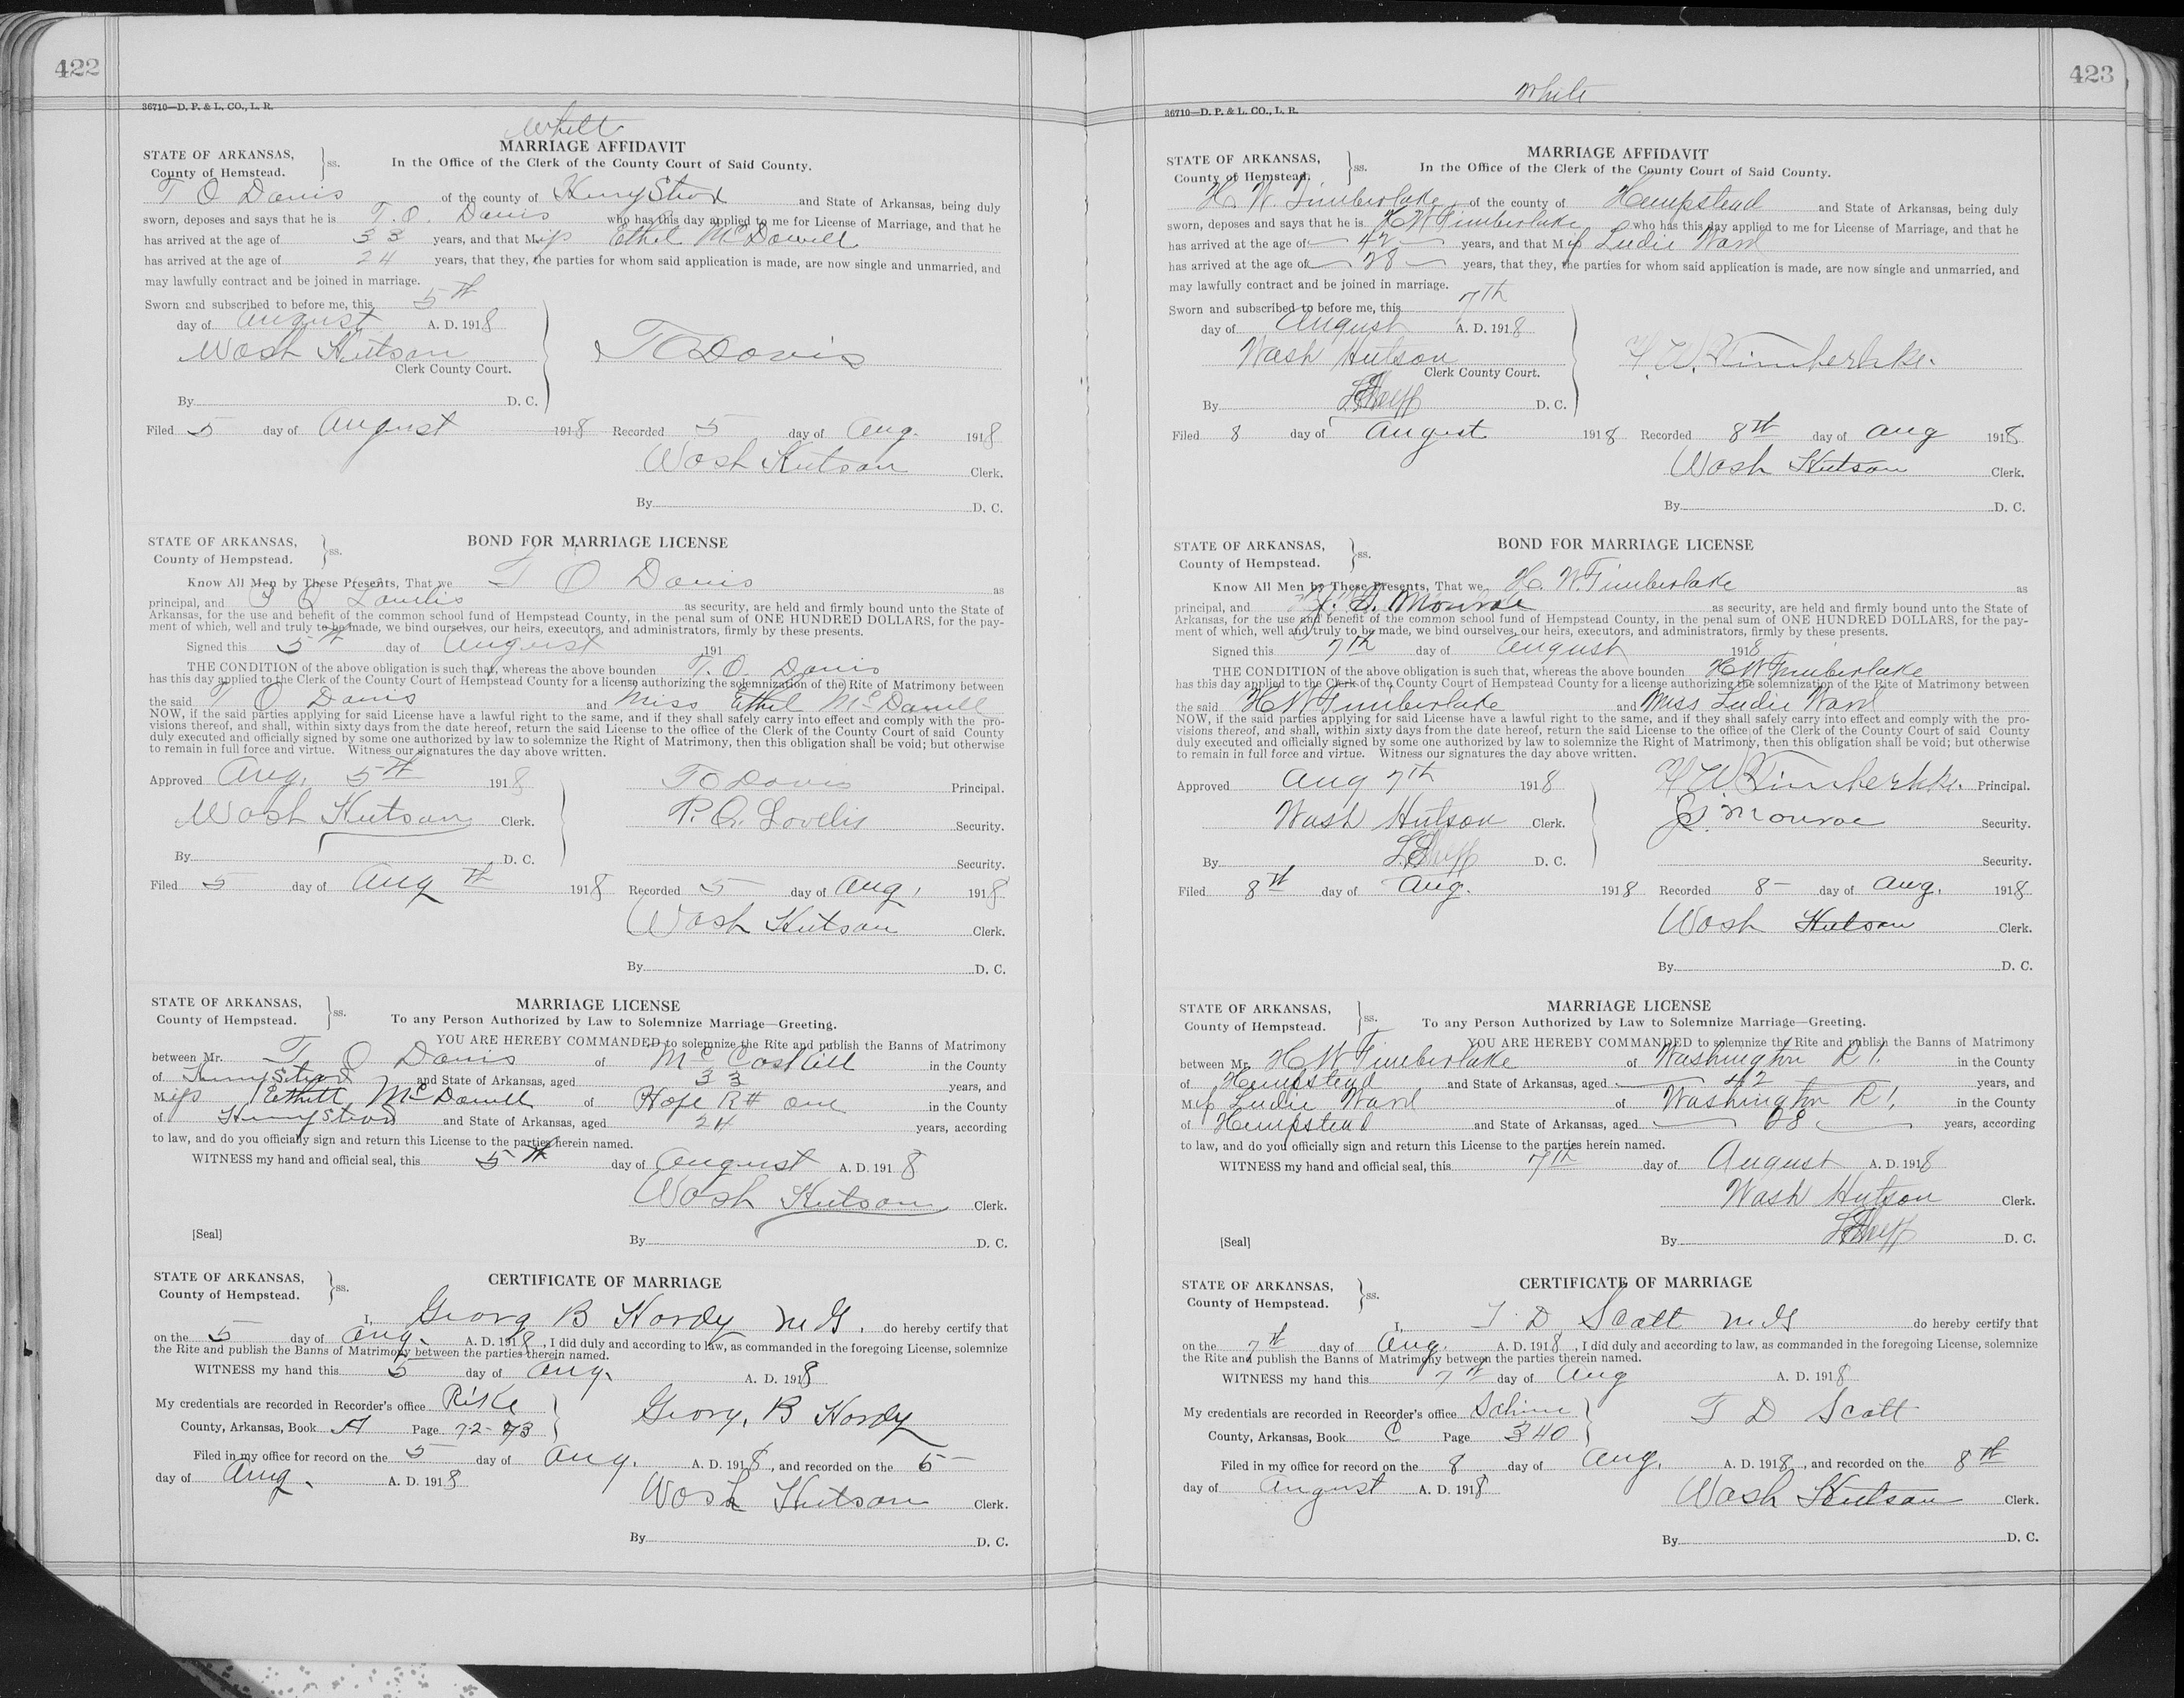 422
36710—D. P. & L. CO., L. R.
White
MARRIAGE AFFIDAVIT
STATE OF ARKANSAS,
County of Hemstead. } ss.
In the Office of the Clerk of the County Court of Said County.
T O Davis of the county of Hempstead and State of Arkansas, being duly
sworn, deposes and says that he is T. O. Davis who has this day applied to me for License of Marriage, and that he
has arrived at the age of 33 years, and that Miss Ethel McDowell
has arrived at the age of 24 years, that they, the parties for whom said application is made, are now single and unmarried, and
may lawfully contract and be joined in marriage.
Sworn and subscribed to before me, this 5th
day of August A. D. 1918
Wash Hutson
Clerk County Court.
T O Davis
By D. C.
Filed 5 day of August 1918 Recorded 5 day of Aug. 1918
Wash Hutson Clerk.
By D. C.
STATE OF ARKANSAS,
County of Hempstead. } ss.
BOND FOR MARRIAGE LICENSE
Know All Men by These Presents, That we T O Davis as
principal, and P Q Lovelis as security, are held and firmly bound unto the State of
Arkansas, for the use and benefit of the common school fund of Hempstead County, in the penal sum of ONE HUNDRED DOLLARS, for the pay-
ment of which, well and truly to be made, we bind ourselves, our heirs, executors, and administrators, firmly by these presents.
Signed this 5th day of August 191
THE CONDITION of the above obligation is such that, whereas the above bounden T. O. Davis
has this day applied to the Clerk of the County Court of Hempstead County for a license authorizing the solemnization of the Rite of Matrimony between
the said T O Davis and Miss Ethel McDowell
NOW, if the said parties applying for said License have a lawful right to the same, and if they shall safely carry into effect and comply with the pro-
visions thereof, and shall, within sixty days from the date hereof, return the said License to the office of the Clerk of the County Court of said County
duly executed and officially signed by some one authorized by law to solemnize the Right of Matrimony, then this obligation shall be void; but otherwise
to remain in full force and virtue. Witness our signatures the day above written.
Approved Aug. 5th 1918
T O Davis Principal.
Wash Hutson Clerk.
P. Q. Lovelis Security.
By D. C.
Security.
Filed 5 day of Aug th 1918 Recorded 5 day of Aug, 1918
Wash Hutson Clerk.
By D. C.
STATE OF ARKANSAS,
County of Hempstead. } ss.
MARRIAGE LICENSE
To any Person Authorized by Law to Solemnize Marriage—Greeting.
YOU ARE HEREBY COMMANDED to solemnize the Rite and publish the Banns of Matrimony
between Mr. T. O Davis of McCaskill in the County
of Hempstead and State of Arkansas, aged 33 years, and
Miss Ethell McDowell of Hope R# one in the County
of Hempstead and State of Arkansas, aged 24 years, according
to law, and do you officially sign and return this License to the parties herein named.
WITNESS my hand and official seal, this 5th day of August A. D. 1918
Wash Hutson Clerk.
[Seal]
By D. C.
STATE OF ARKANSAS,
County of Hempstead. } ss.
CERTIFICATE OF MARRIAGE
I, Georg B Hardy M G. do hereby certify that
on the 5 day of Aug. A. D. 1918, I did duly and according to law, as commanded in the foregoing License, solemnize
the Rite and publish the Banns of Matrimony between the parties therein named.
WITNESS my hand this 5 day of Aug. A. D. 1918
My credentials are recorded in Recorder's office Pike
County, Arkansas, Book A Page 72-73
Georg. B Hardy
Filed in my office for record on the 5 day of Aug. A. D. 1918, and recorded on the 5
day of Aug. A. D. 1918
Wash Hutson Clerk.
By D. C.
423
36710—D. P. & L. CO., L. R.
White
MARRIAGE AFFIDAVIT
STATE OF ARKANSAS,
County of Hemstead. } ss.
In the Office of the Clerk of the County Court of Said County.
H. W. Timberlake of the county of Hempstead and State of Arkansas, being duly
sworn, deposes and says that he is H W Timberlake who has this day applied to me for License of Marriage, and that he
has arrived at the age of 42 years, and that Miss Ludie Ward
has arrived at the age of 28 years, that they, the parties for whom said application is made, are now single and unmarried, and
may lawfully contract and be joined in marriage.
Sworn and subscribed to before me, this 7th
day of August A. D. 1918
Wash Hutson
Clerk County Court.
H. W. Timberlake.
By D. C.
Filed 8 day of August 1918 Recorded 8th day of Aug 1918
Wash Hutson Clerk.
By D. C.
STATE OF ARKANSAS,
County of Hempstead. } ss.
BOND FOR MARRIAGE LICENSE
Know All Men by These Presents, That we H. W. Timberlake as
principal, and J. S. Monroe as security, are held and firmly bound unto the State of
Arkansas, for the use and benefit of the common school fund of Hempstead County, in the penal sum of ONE HUNDRED DOLLARS, for the pay-
ment of which, well and truly to be made, we bind ourselves, our heirs, executors, and administrators, firmly by these presents.
Signed this 7th day of August 1918
THE CONDITION of the above obligation is such that, whereas the above bounden H W Timberlake
has this day applied to the Clerk of the County Court of Hempstead County for a license authorizing the solemnization of the Rite of Matrimony between
the said H W Timberlake and Miss Ludie Ward
NOW, if the said parties applying for said License have a lawful right to the same, and if they shall safely carry into effect and comply with the pro-
visions thereof, and shall, within sixty days from the date hereof, return the said License to the office of the Clerk of the County Court of said County
duly executed and officially signed by some one authorized by law to solemnize the Right of Matrimony, then this obligation shall be void; but otherwise
to remain in full force and virtue. Witness our signatures the day above written.
Approved Aug 7th 1918
H W Timberlake. Principal.
Wash Hutson Clerk.
J S. Monroe Security.
By D. C.
Security.
Filed 8th day of Aug. 1918 Recorded 8 day of Aug. 1918
Wash Hutson Clerk.
By D. C.
STATE OF ARKANSAS,
County of Hempstead. } ss.
MARRIAGE LICENSE
To any Person Authorized by Law to Solemnize Marriage—Greeting.
YOU ARE HEREBY COMMANDED to solemnize the Rite and publish the Banns of Matrimony
between Mr. H W Timberlake of Washington R 1. in the County
of Hempstead and State of Arkansas, aged 42 years, and
Miss Ludie Ward of Washington R 1. in the County
of Hempstead and State of Arkansas, aged 28 years, according
to law, and do you officially sign and return this License to the parties herein named.
WITNESS my hand and official seal, this 7th day of August A. D. 1918
Wash Hutson Clerk.
[Seal]
By D. C.
STATE OF ARKANSAS,
County of Hempstead. } ss.
CERTIFICATE OF MARRIAGE
I, T. D Scott M G do hereby certify that
on the 7th day of Aug. A. D. 1918, I did duly and according to law, as commanded in the foregoing License, solemnize
the Rite and publish the Banns of Matrimony between the parties therein named.
WITNESS my hand this 7th day of Aug A. D. 1918
My credentials are recorded in Recorder's office
County, Arkansas, Book C Page 340
T D Scott
Filed in my office for record on the 8 day of Aug. A. D. 1918, and recorded on the 8th
day of August A. D. 1918
Wash Hutson Clerk.
By D. C.